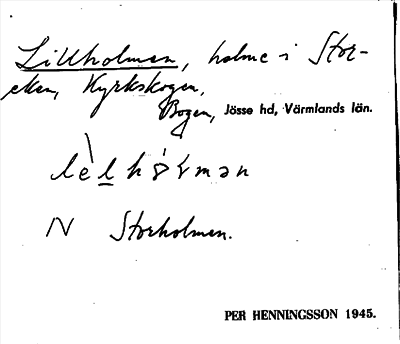 Lillholmen, holme i Stor-
eken, Kyrkskogen,
Bogen, Jösse hd, Värmlands län.
N Storholmen.
PER HENNINGSSON 1945.